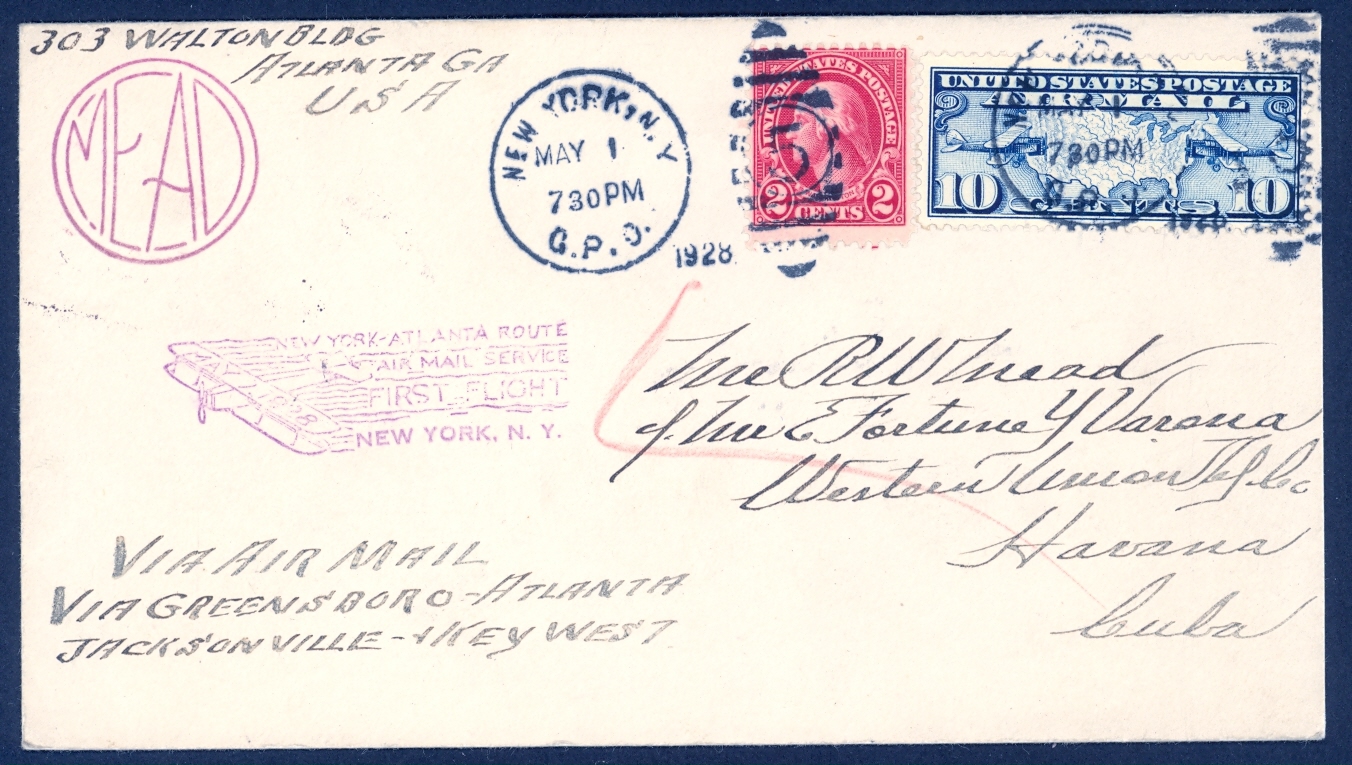 303 WALTON BLDG
ATLANTA GA
USA
MEAD
NEW YORK, N.Y.
MAY 1
730PM
G.P.O.
1928
UNITED STATES POSTAGE
2 CENTS 2
UNITED STATES POSTAGE
AIR MAIL
MAY 1
730PM
10 CENTS 10
1928
NEW YORK-ATLANTA ROUTE
AIR MAIL SERVICE
FIRST FLIGHT
MAY 1 1928
NEW YORK, N. Y.
Mr R W Mead
c/o Mr E Fortune Y Varona
Western Union Tel Co
Havana
Cuba
VIA AIR MAIL
VIA GREENSBORO-ATLANTA
JACKSONVILLE-+KEY WEST